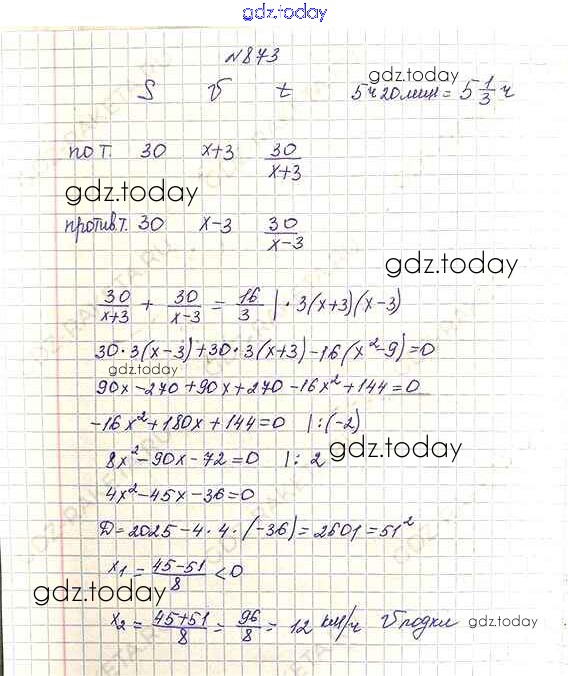 gdz.today
№873
gdz.today
S V t 5ч20мин=5 1/3 ч
по т. 30 x+3 30/(x+3)
gdz.today
против.т. 30 x-3 30/(x-3)
gdz.today
30/(x+3) + 30/(x-3) = 16/3 | · 3(x+3)(x-3)
30·3(x-3)+30·3(x+3)-16(x²-9)=0
gdz.today
90x-270+90x+270-16x²+144=0
-16x²+180x+144=0 |:(-2)
gdz.today
8x²-90x-72=0 |: 2
4x²-45x-36=0
D=2025-4·4·(-36)=2601=51²
x₁=(45-51)/8<0
gdz.today
x₂=(45+51)/8=96/8=12 км/ч V лодки
gdz.today